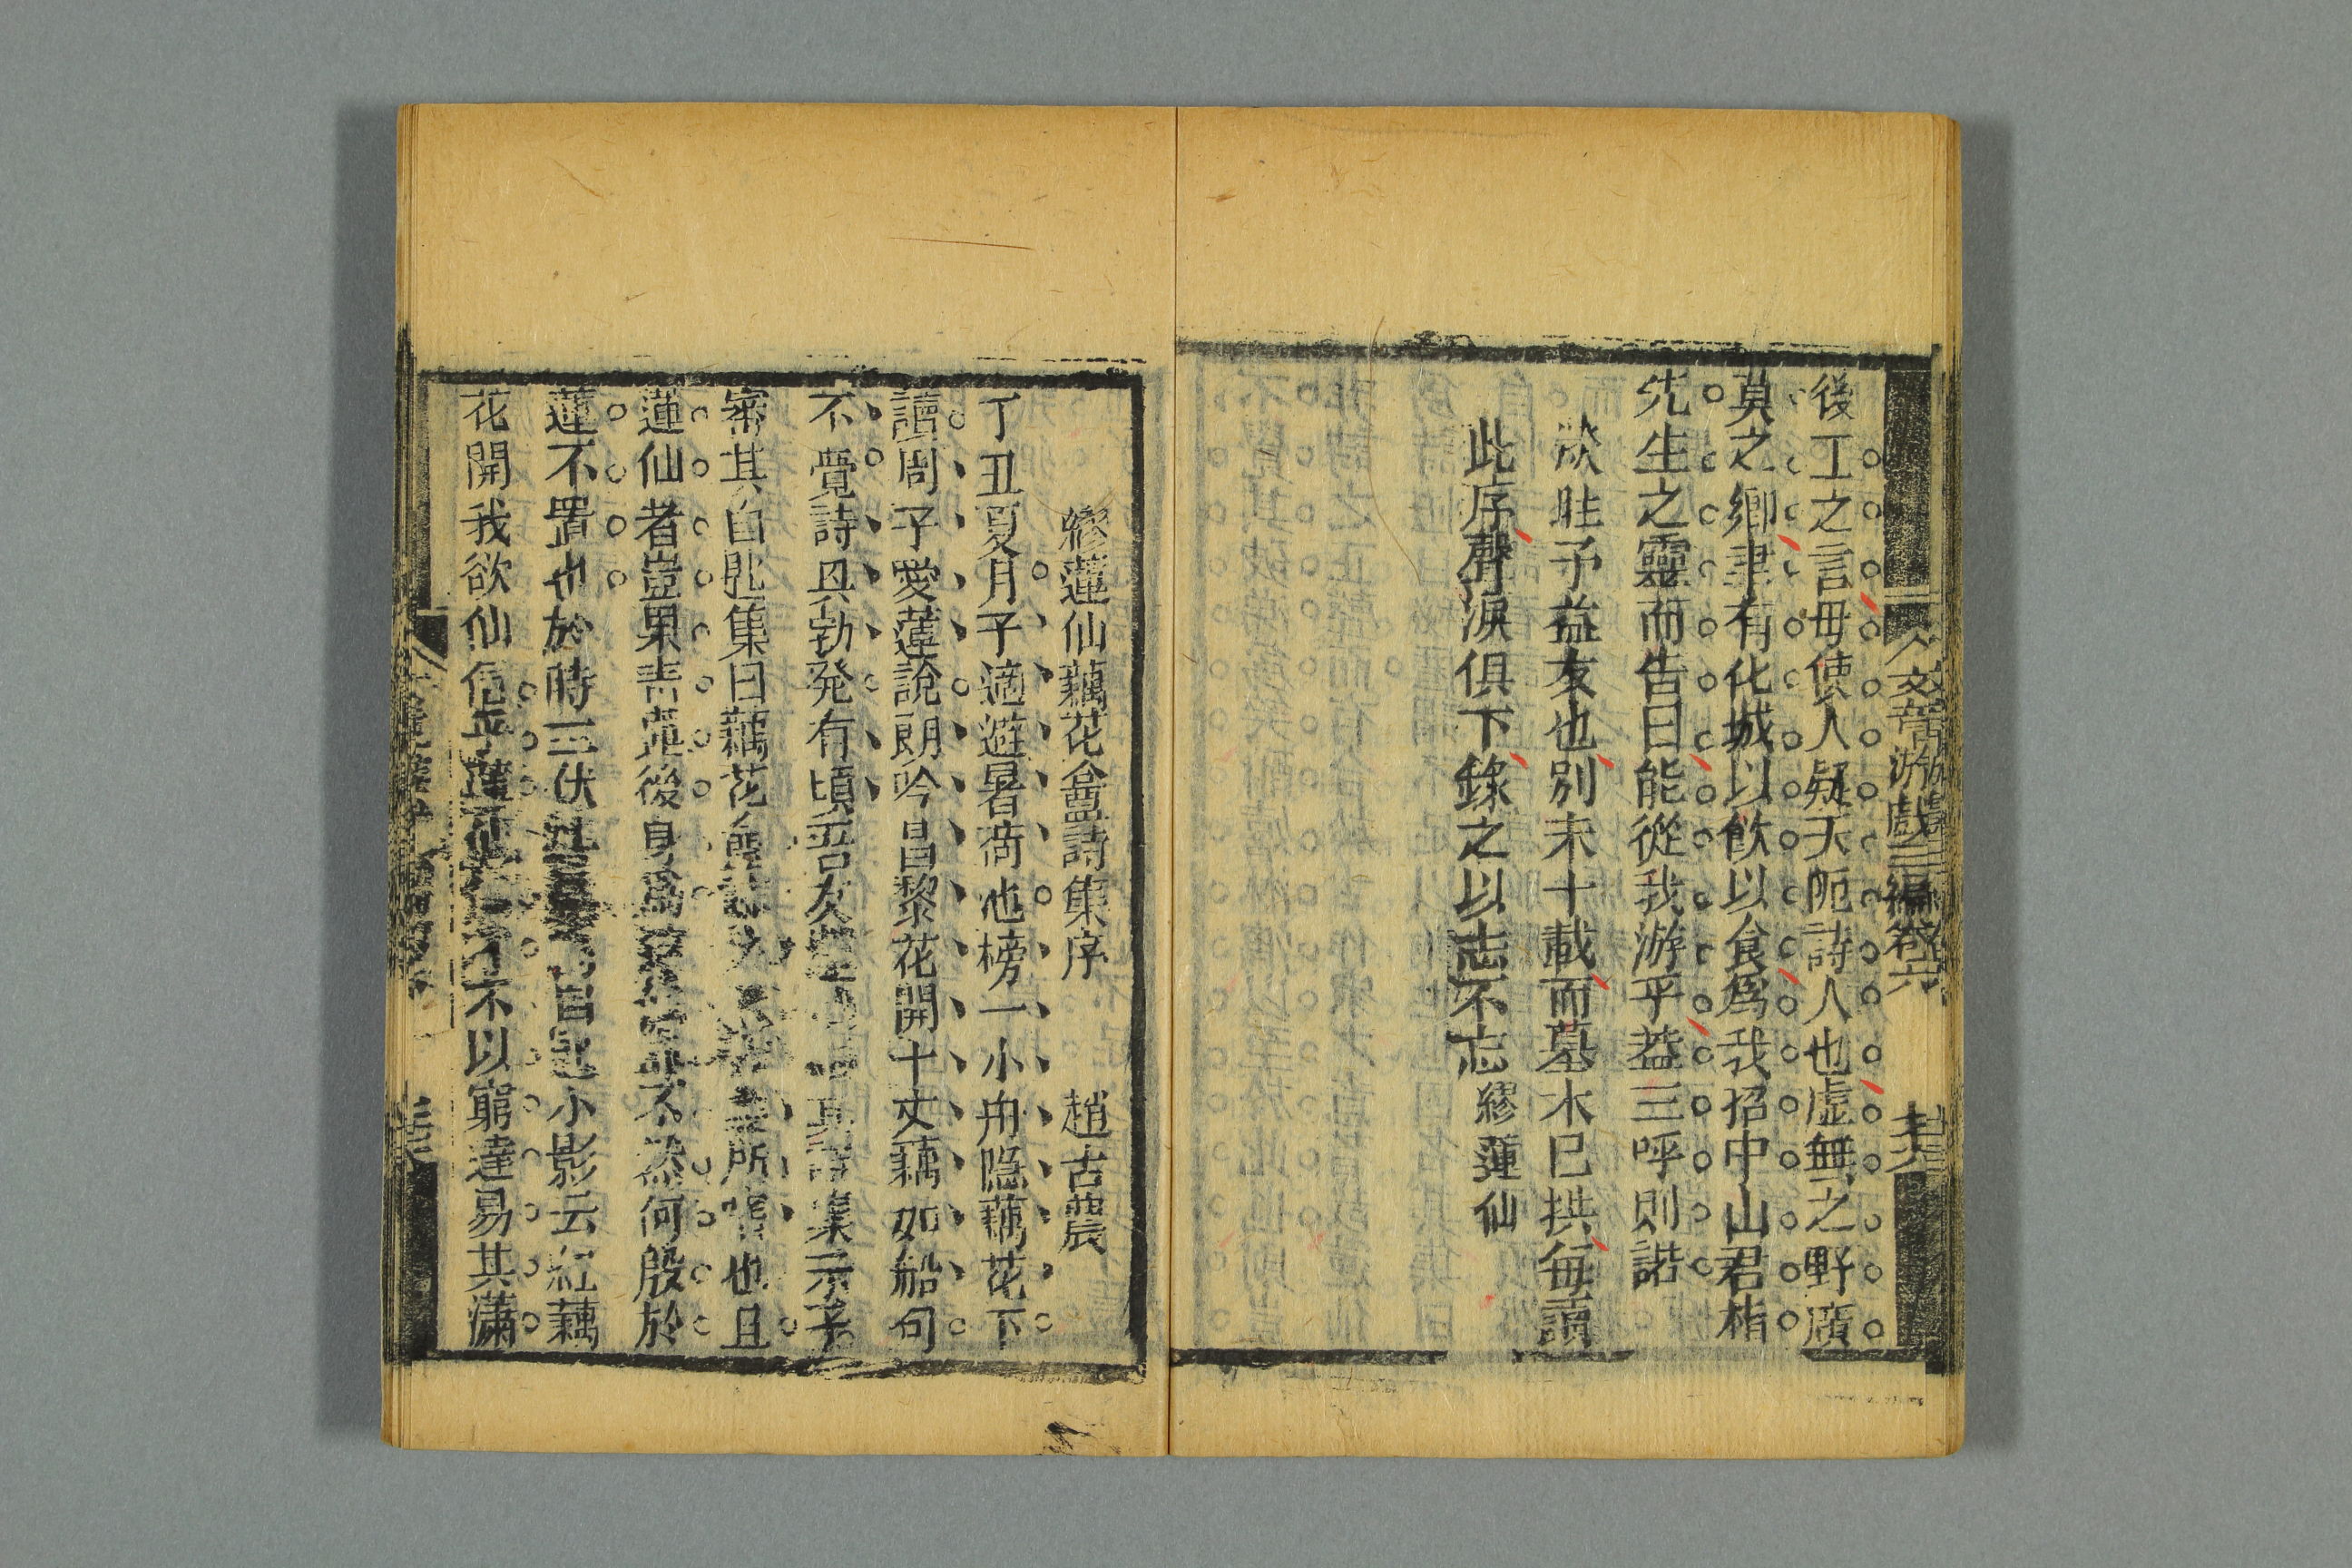 文章游戲三編卷六
後工之言毋使人疑天阨詩人也虛無之野廣
莫之鄉聿有化城以飲以食爲我招中山君楮
先生之靈而告曰能從我游乎葢三呼則諾
欻生予益友也別未十載而墓木已拱每讀
此序聲淚俱下錄之以志不忘 繆蓮仙
繆蓮仙藕花盦詩集序 趙古農
丁丑夏月予適避暑荷池榜一小舟隱藕花下
讀周子愛蓮說朗吟昌黎花開十丈藕如船句
不覺詩興勃発有頃吾友 詩集示予
審其自題集曰藕花盦 所嗜也且
蓮仙者豈果青蓮後身爲 不然何殷於
蓮不置也於時三伏 自題小影云紅藕
花開我欲仙 不以窮達易其瀟